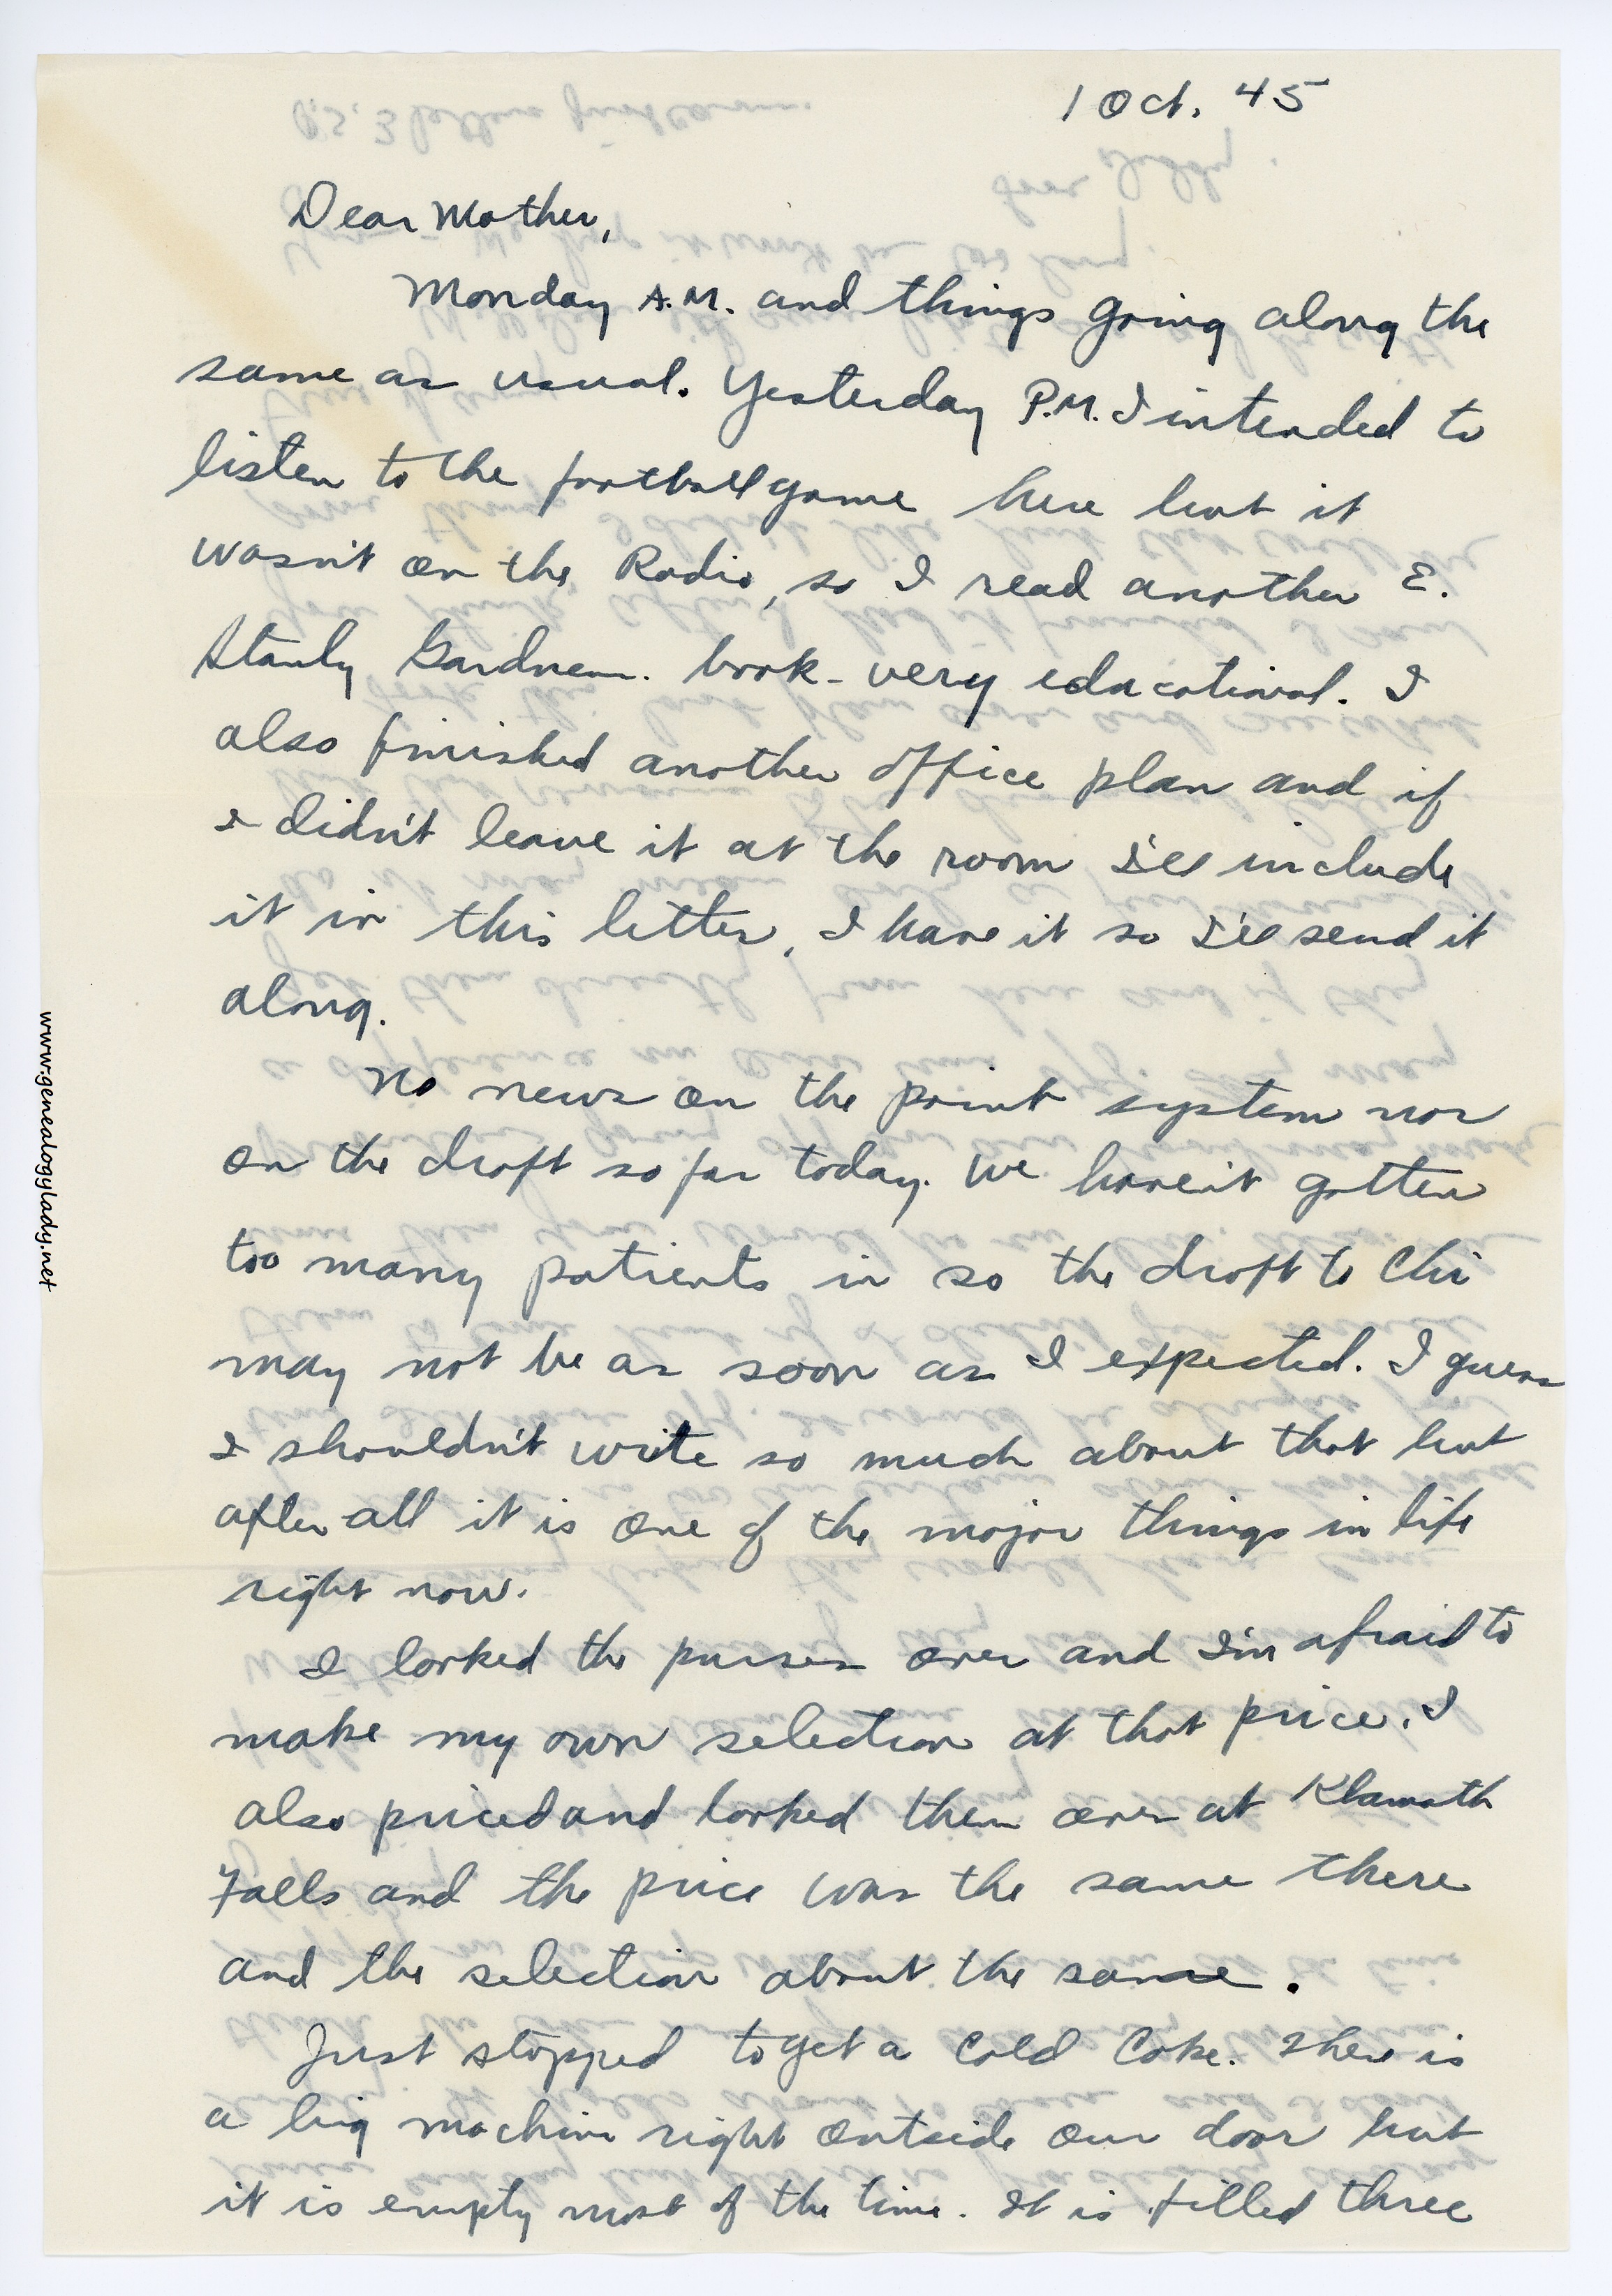 1 Oct. 45
Dear Mother,
Monday A.M. and things going along the
same as usual. Yesterday P.M. I intended to
listen to the football game here but it
wasn't on the Radio, so I read another E.
Stanly Gardner book - very educational. I
also finished another office plan and if
I didn't leave it at the room I'll include
it in this letter, I have it so I'll send it
along.
No news on the point system nor
on the draft so far today. We haven't gotten
too many patients in so the draft to Chi
may not be as soon as I expected. I guess
I shouldn't write so much about that but
after all it is one of the major things in life
right now.
I looked the purses over and I'm afraid to
make my own selection at that price. I
also priced and looked them over at Klamath
Falls and the price was the same there
and the selection about the same.
Just stopped to get a cold Coke. There is
a big machine right outside our door but
it is empty most of the time. It is filled three
www.genealogylady.net